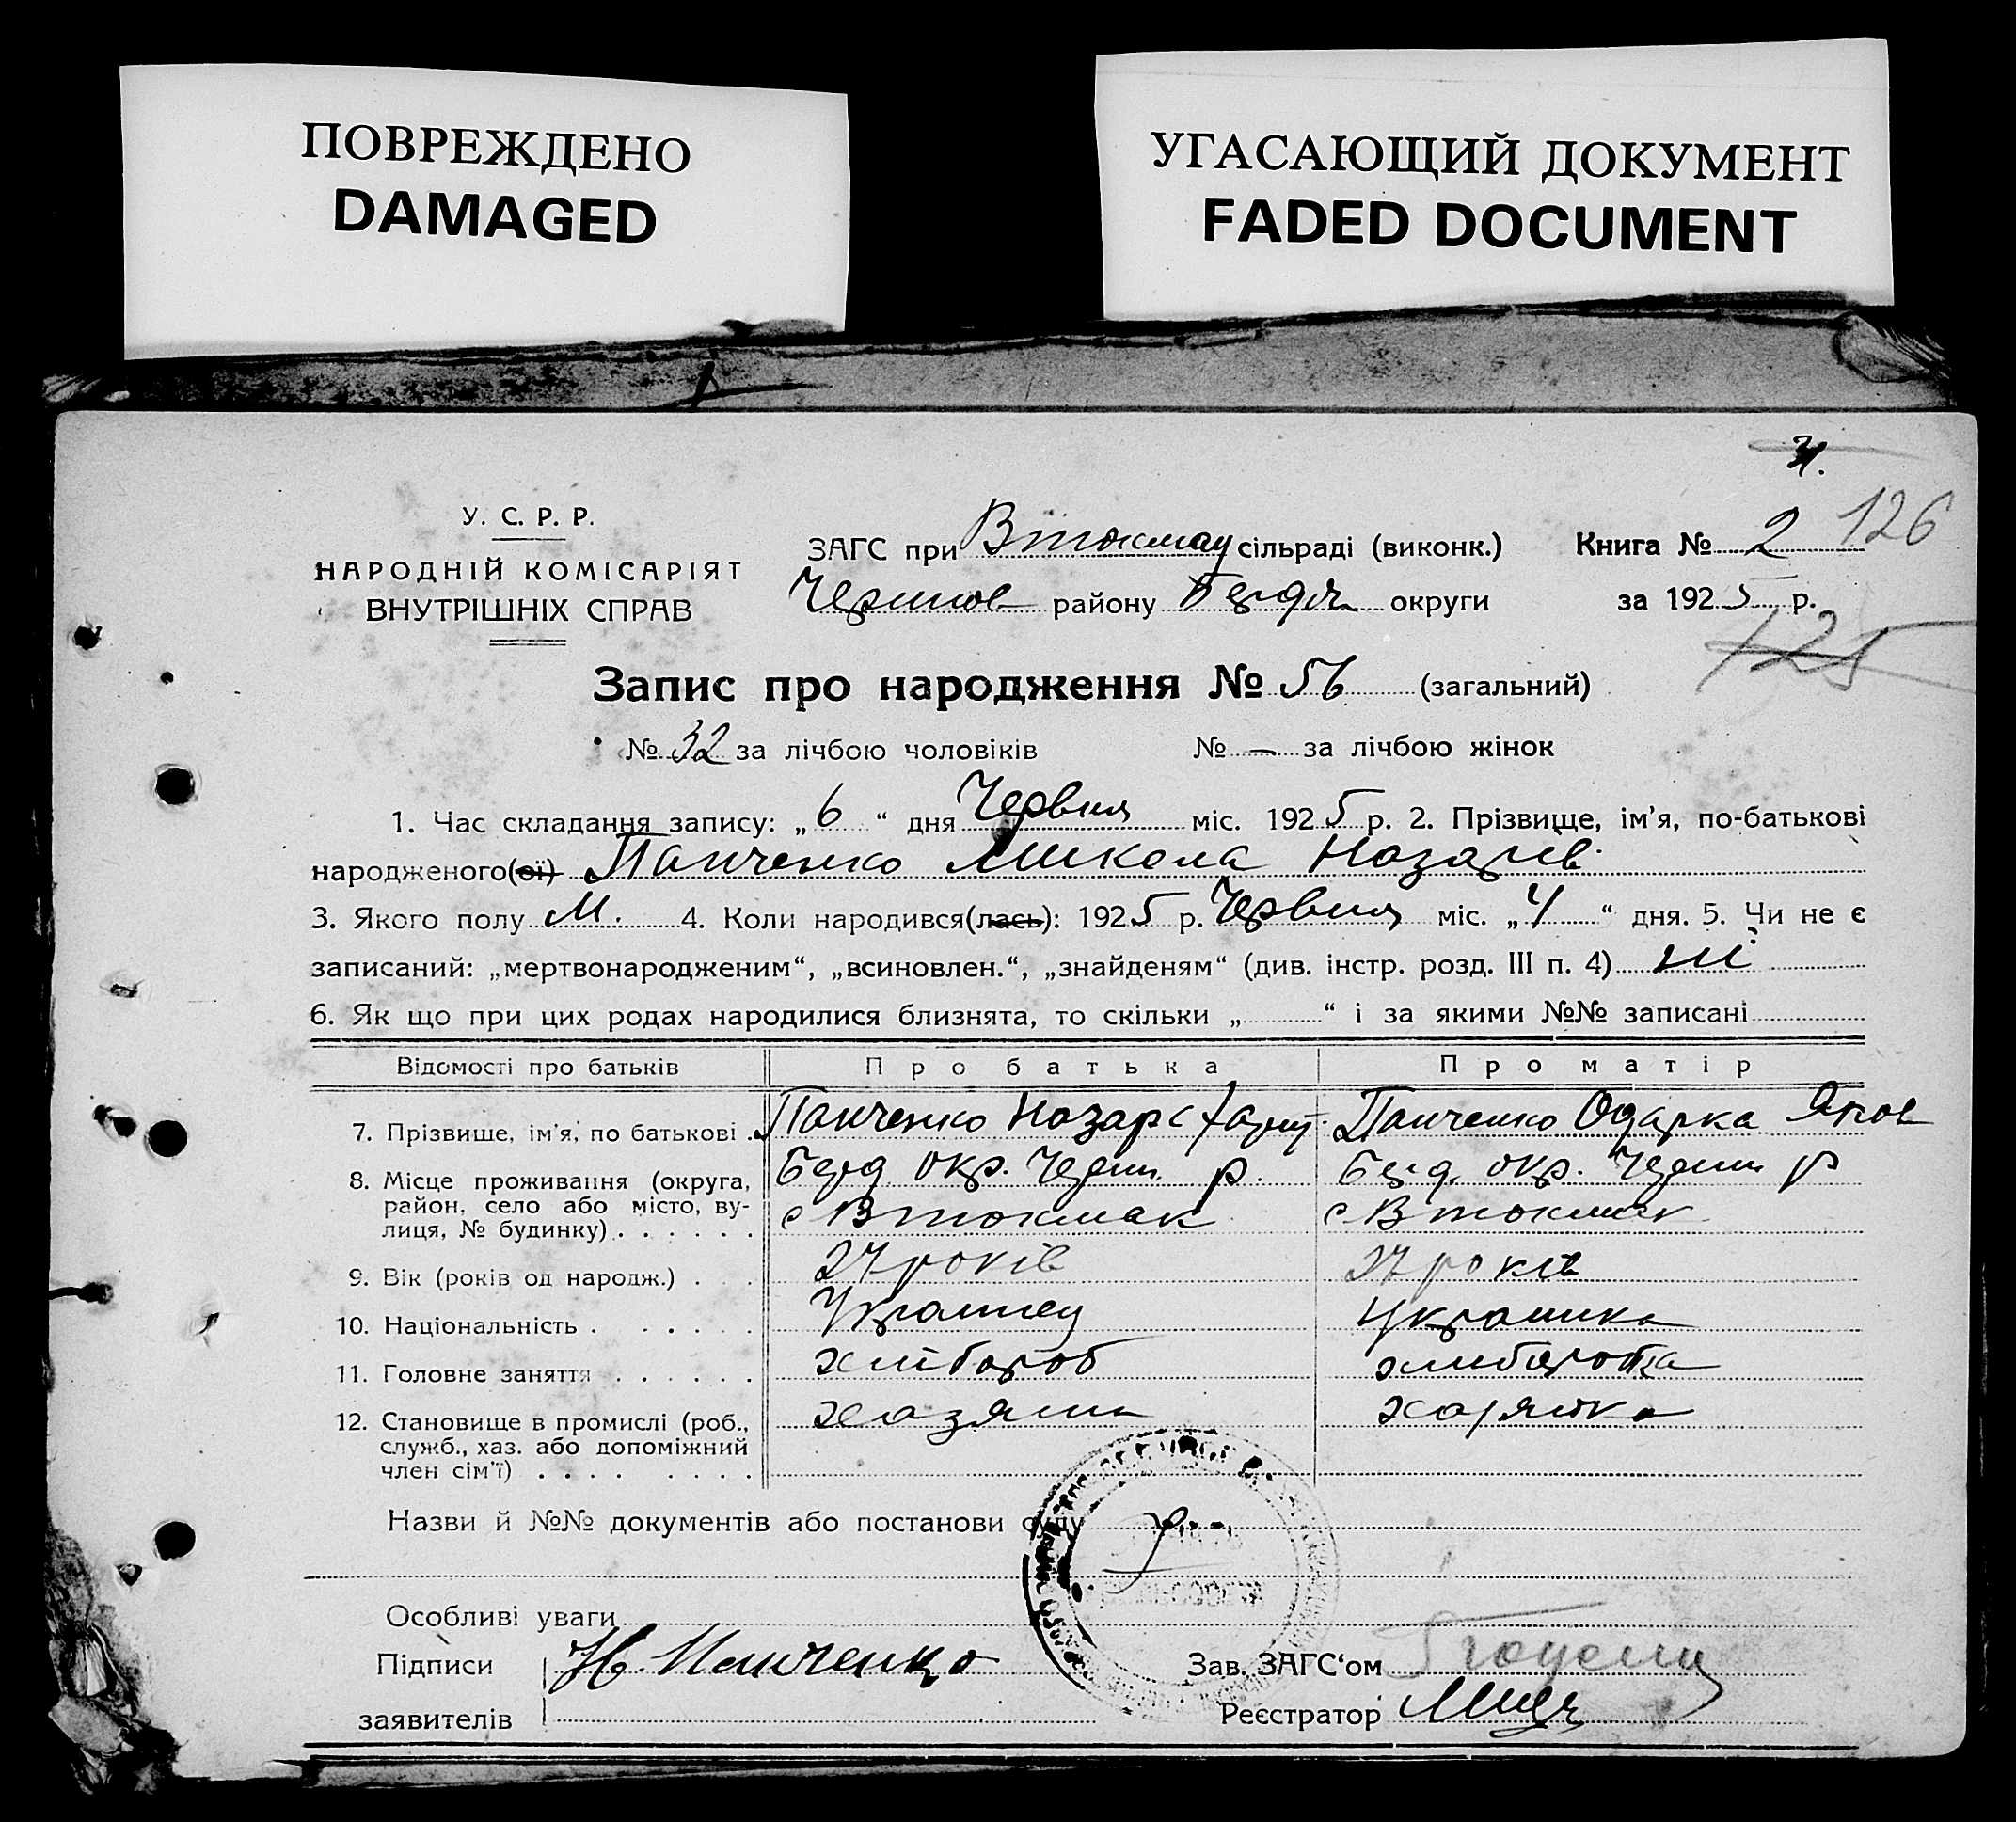 ПОВРЕЖДЕНО
DAMAGED
УГАСАЮЩИЙ ДОКУМЕНТ
FADED DOCUMENT
У. С. Р. Р.
НАРОДНІЙ КОМІСАРІЯТ
ВНУТРІШНІХ СПРАВ
ЗАГС при Втокмац сільраді (виконк.)
Черниг району Бердя округи
Книга № 2 126
за 1925 р.
125
Запис про народження № 56 (загальний)
№ 32 за лічбою чоловіків № — за лічбою жінок
1. Час складання запису: „6“ дня Червня міс. 1925 р. 2. Прізвище, ім'я, по-батькові
народженого(ої) Панченко Микола Назарів
3. Якого полу М. 4. Коли народився(лась): 1925 р. Червня міс. „4“ дня. 5. Чи не є
записаний: „мертвонародженим“, „всиновлен.“, „знайденям“ (див. інстр. розд. III п. 4) ні
6. Як що при цих родах народилися близнята, то скільки „ “ і за якими №№ записані
Відомості про батьків Про батька Про матір
7. Прізвище, ім'я, по батькові Панченко Назар Панченко Одарка Яков
8. Місце проживання (округа, Берд окр. Черн. р. Берд. окр. Черн р
район, село або місто, ву- с Втокмак с Втокмак
лиця, № будинку)
9. Вік (років од народж.) 27 років 27 років
10. Національність Украинец Украинка
11. Головне заняття хлібороб хлиборобка
12. Становище в промислі (роб., хазяин хазяйка
служб., хаз. або допоміжний
член сім'ї)
Назви й №№ документів або постанови суду
Особливі уваги
Підписи Н. Панченко Зав. ЗАГС'ом
заявителів Реєстратор